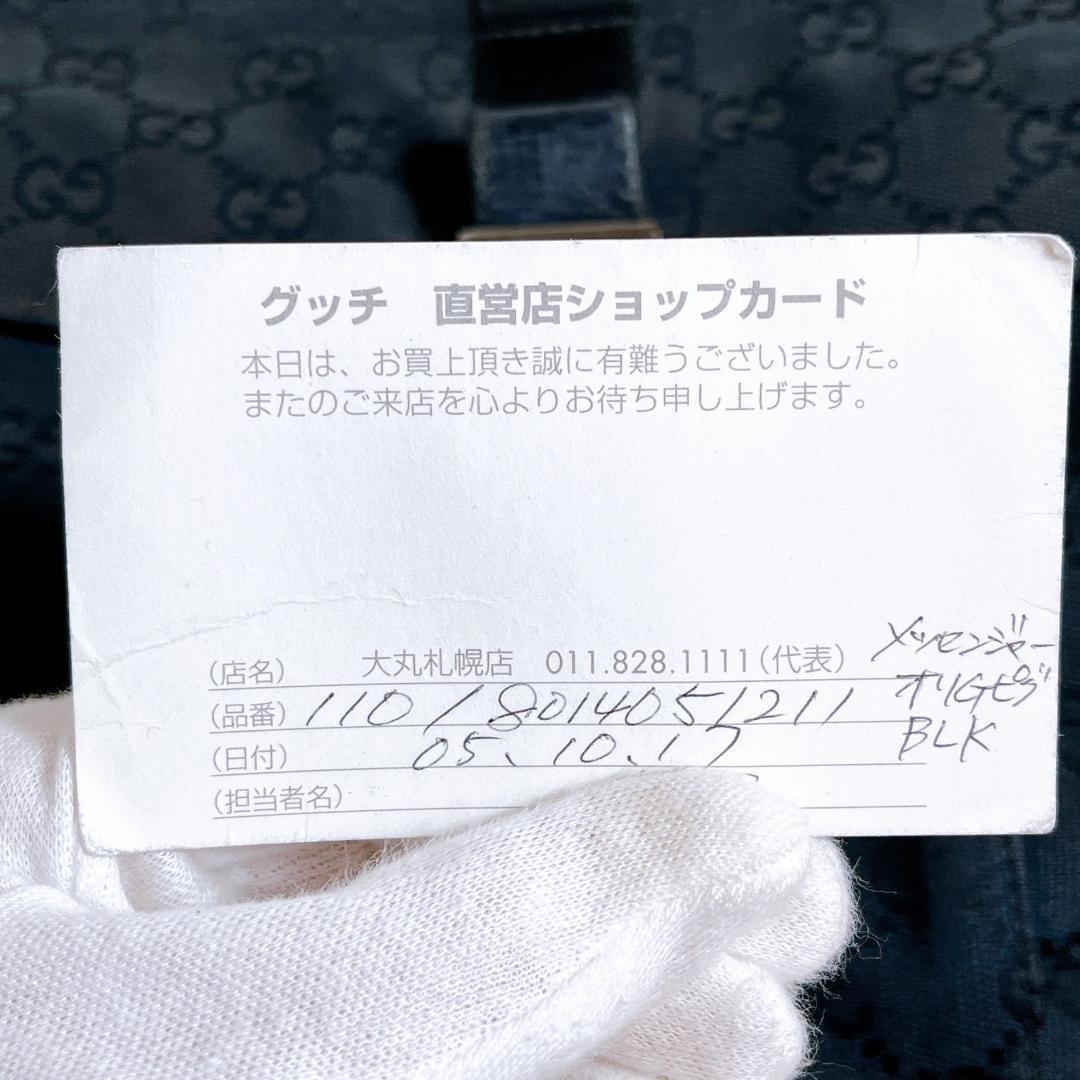 グッチ 直営店ショップカード
本日は、お買上頂き誠に有難うございました。
またのご来店を心よりお待ち申し上げます。
(店名) 大丸札幌店 011.828.1111(代表)
(品番) 110/8014051211
(日付) 05.10.17
(担当者名)
メッセンジャー
オリGピグ
BLK